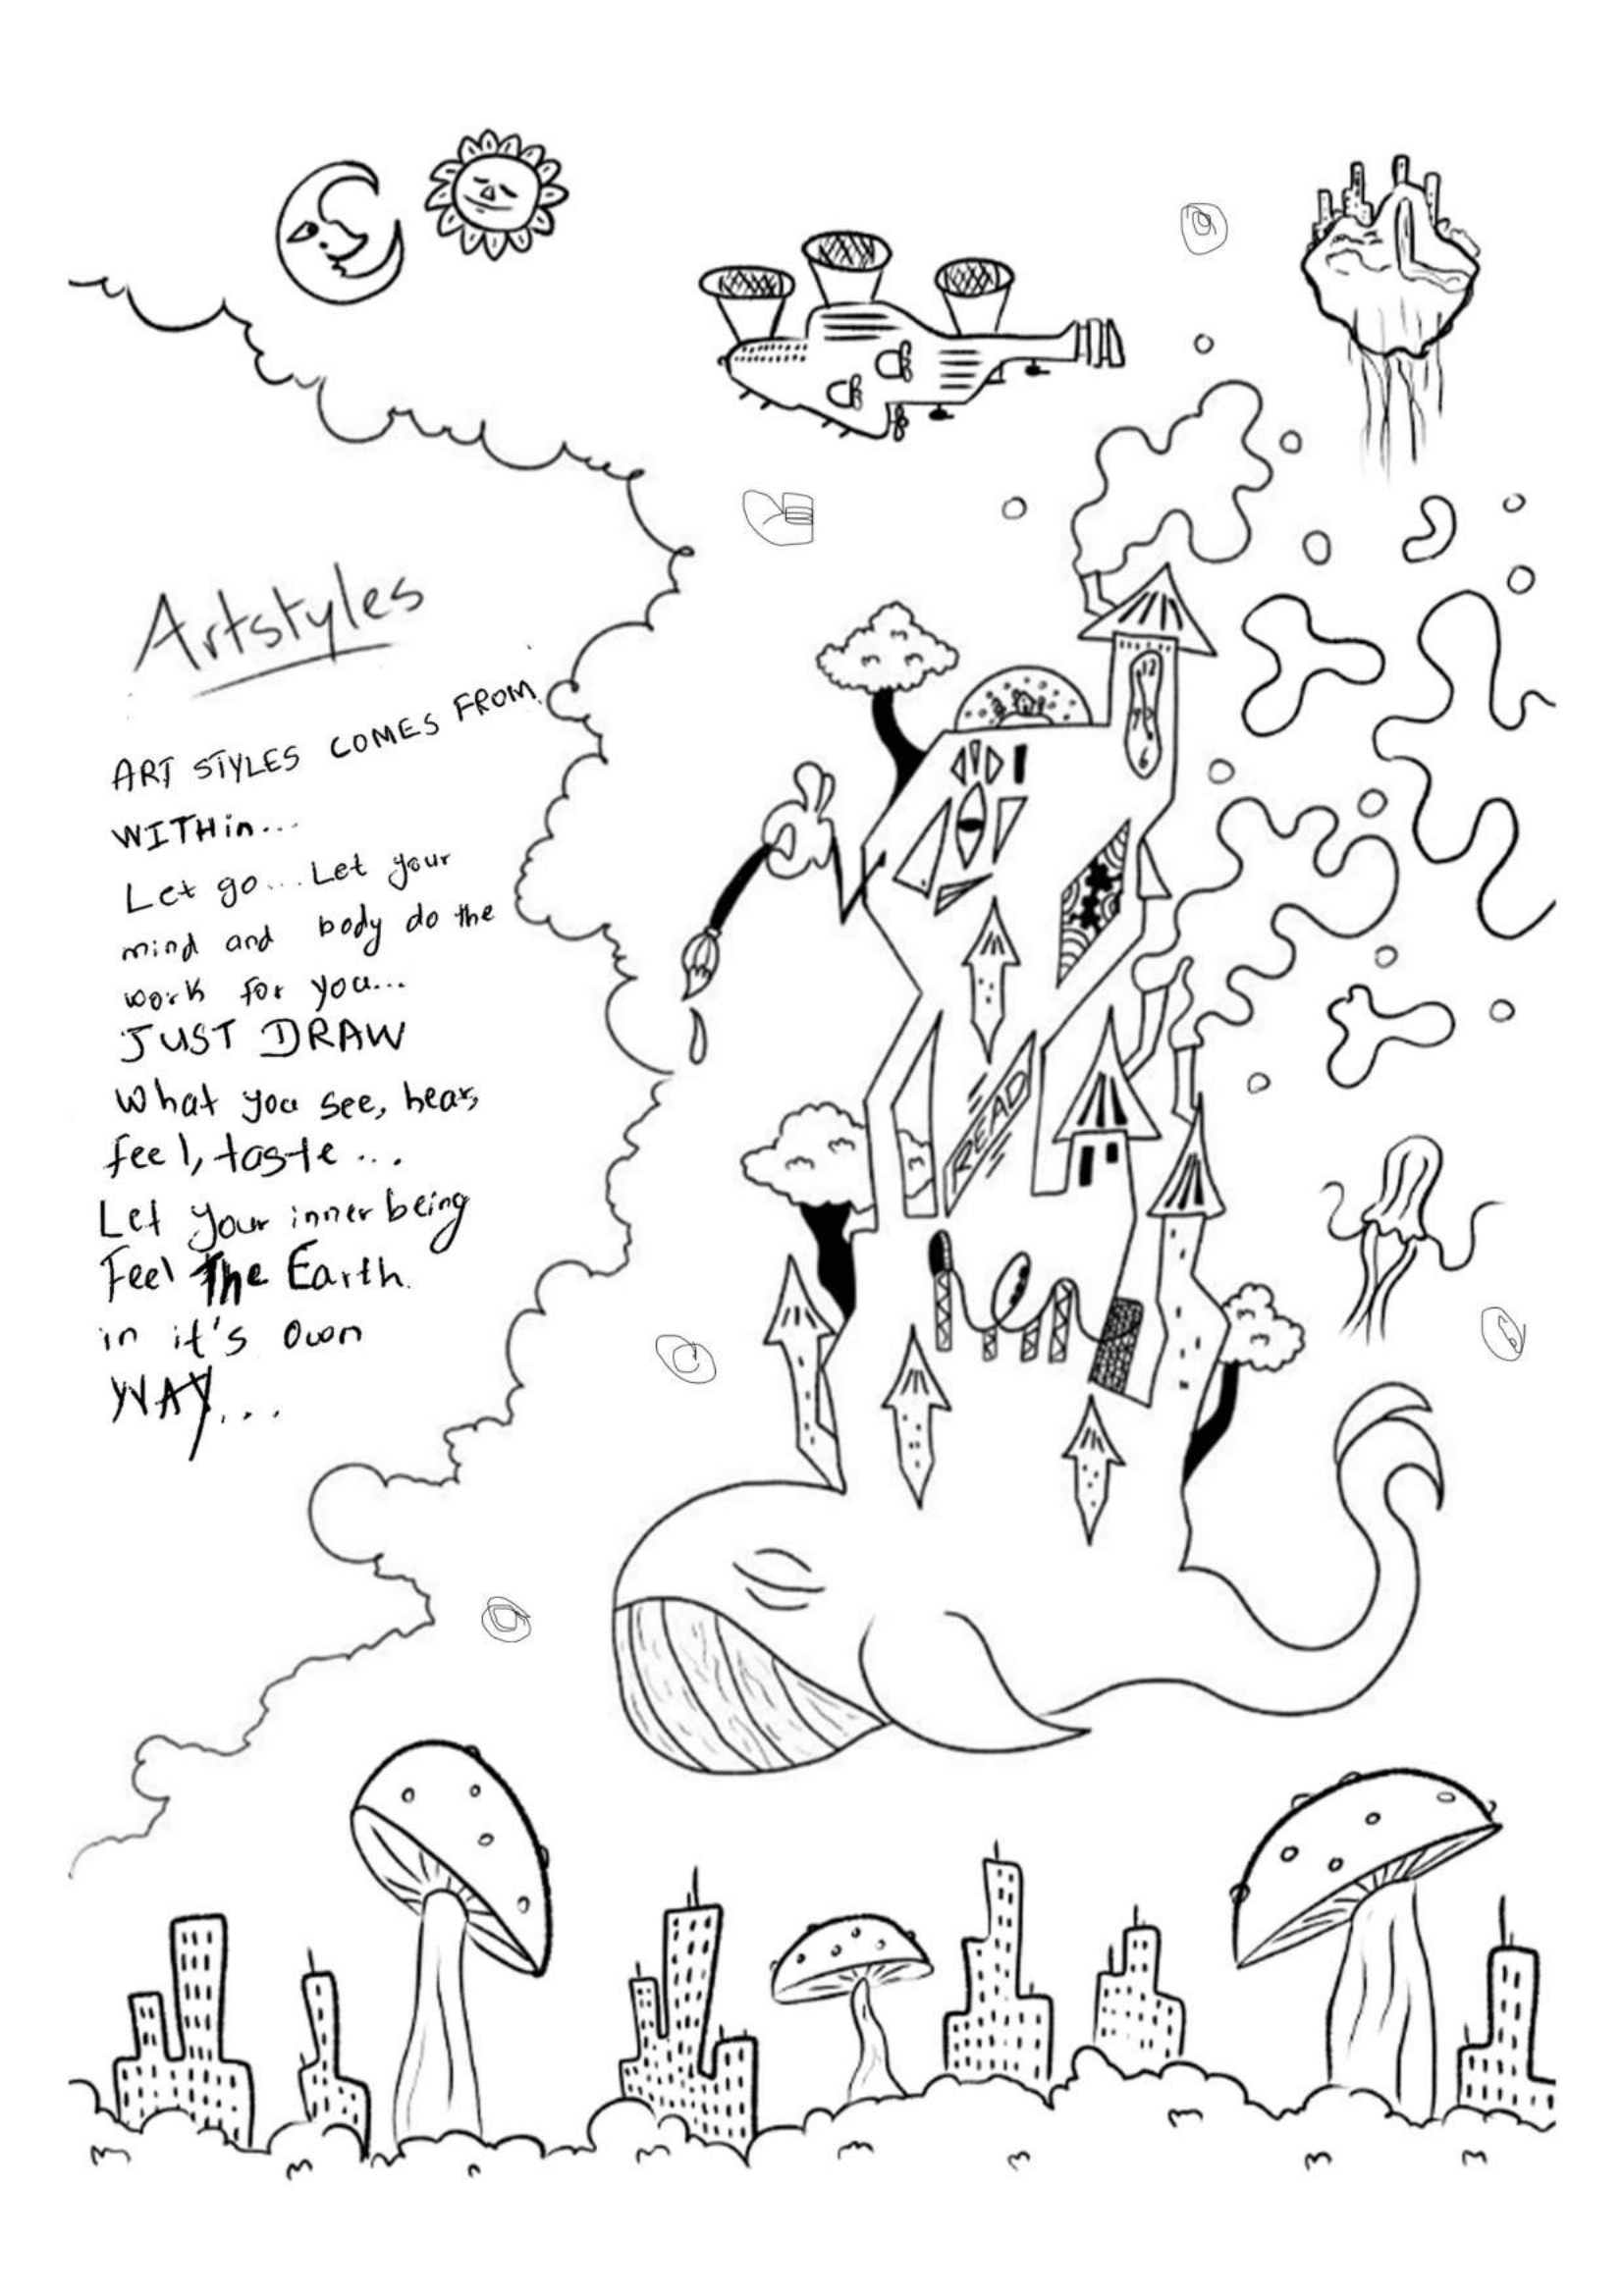 Artstyles
ART STYLES COMES FROM
WITHin...
Let go... Let your
mind and body do the
work for you...
JUST DRAW
What you see, hear,
feel, taste...
Let your inner being
Feel The Earth.
in it's Own
WAY...
12
6
READ